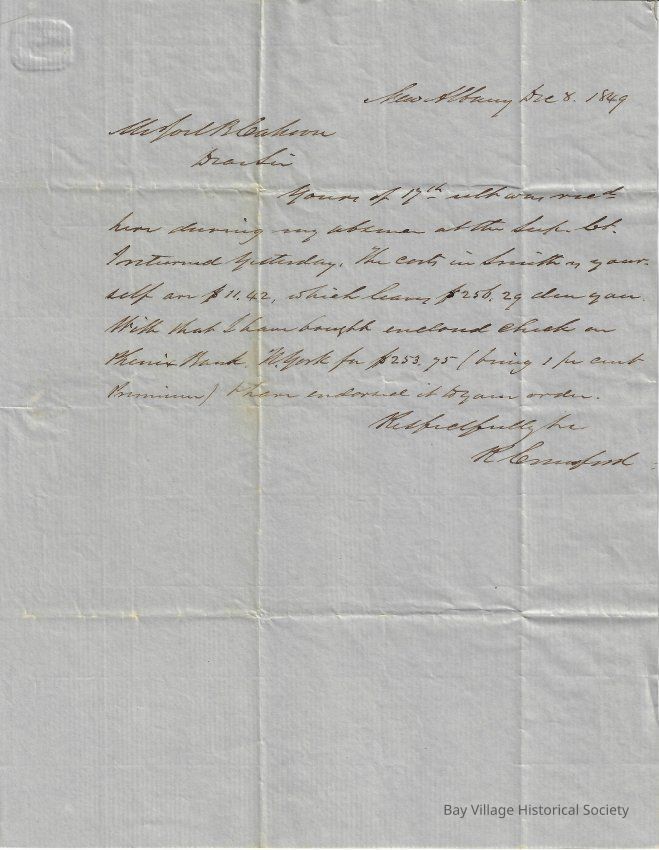 New Albany Dec 8. 1849
Mr Joel B Cahoon
Dear Sir
Yours of 17th ult was recd
here during my absence at the Sup. Ct.
I returned yesterday. The costs in Smith vs your
self are $11.42, which leaves $256.29 due you.
With that I have bought enclosed check on
Phenix Bank N. York for $253.75 (being 1 pr cent
Premium) I have endorsed it to your order.
Respectfully &c
R Crawford
Bay Village Historical Society